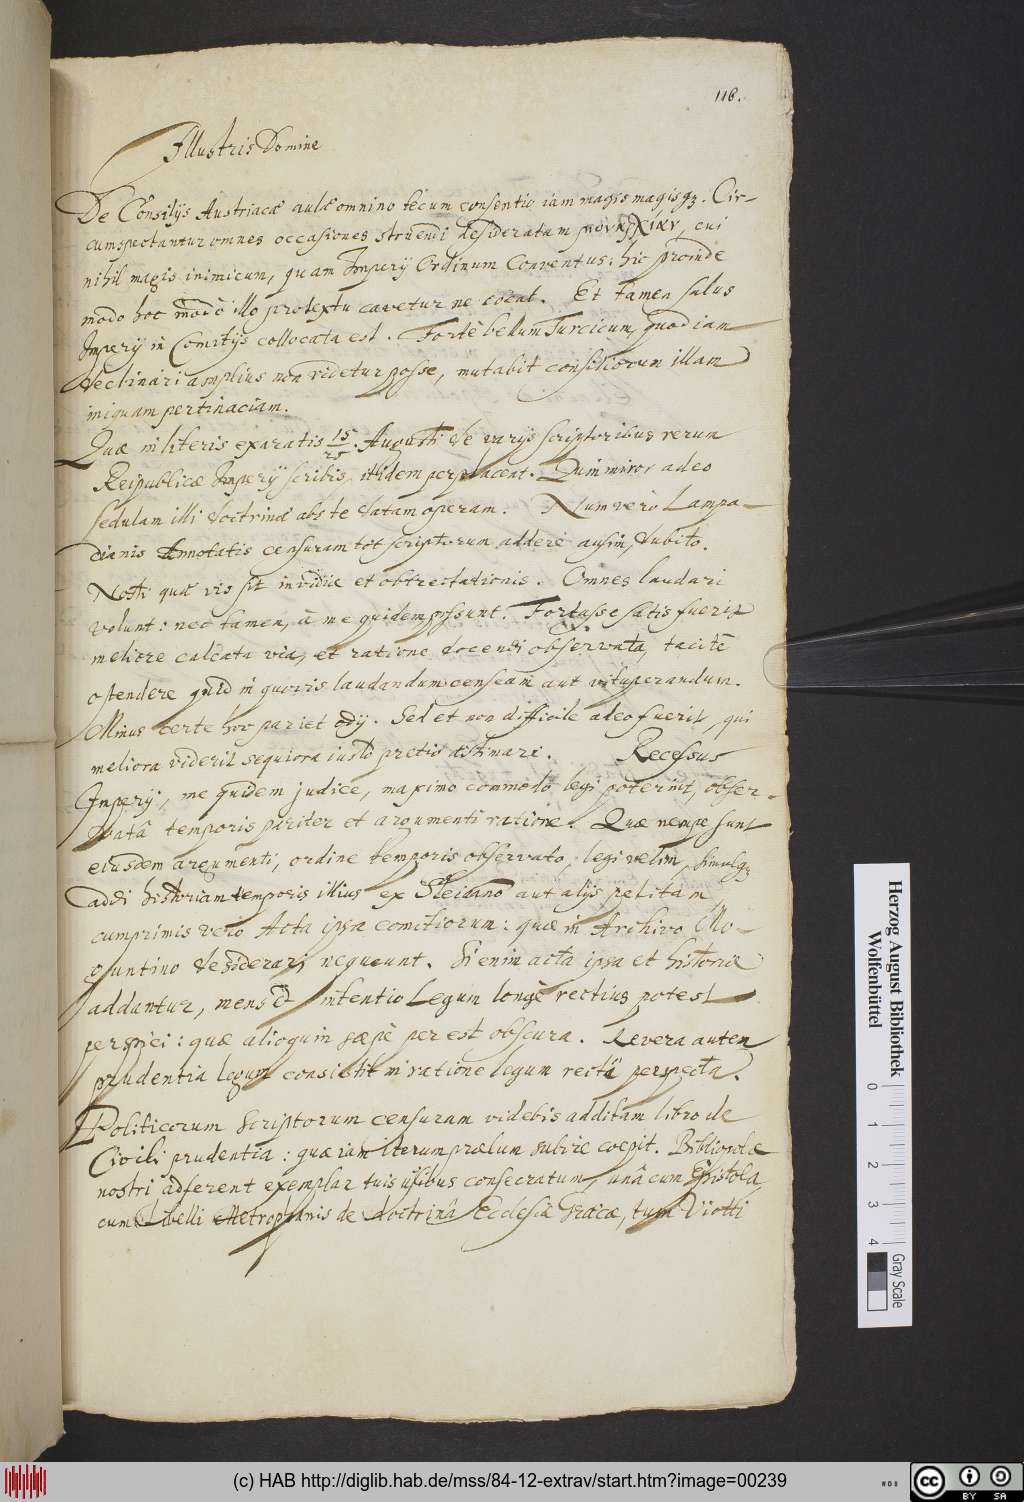 118.
Illustris Domine
De Consilijs Austriacæ aulæ omnino tecum consentio iam magis magisq3. Cir-
cumspectantur omnes occasiones struendi desideratum μοναρχίαν, cui
nihil magis inimicum, quam Imperij Ordinum Conventus: hic proinde
modo hoc modò illo protextu cavetur ne coeat. Et tamen salus
Imperij in Comitijs collocata est. Fortè bellum Turcicum, quod iam
declinari amplius non videtur posse, mutabit consiliorum illam
iniquam pertinaciam.
Quæ in literis exaratis 15/25. Augusti de varijs scriptoribus rerum
Reipublicæ Imperij scribis, itidem perplacent. Quin miror adeo
sedulam illi doctrinæ abs te datam operam. Num verò Lampa-
dianis Annotatis censuram tot scriptorum addere ausim, dubito.
Nosti quæ vis sit invidiæ et obtrectationis. Omnes laudari
volunt: nec tamen, à me quidem possunt. Fortasse satis fuerit
meliore calcata via, et ratione docendi observata, tacitè
ostendere quid in quovis laudandum censeam aut vituperandum.
Minus certe hoc pariet odij. Sed et non difficile adeo fuerit, qui
meliora viderit sequiora iusto pretio æstimari. Recessus
Imperij, me quidem judice, maximo commodo legi poterunt, obser-
vatâ temporis pariter et argumenti ratione. Quæ nempe sunt
eiusdem argumenti, ordine temporis observato, legi velim, simulq3
addi historiam temporis illius ex Sleidano aut alijs petitam,
cumprimis verò Acta ipsa comitiorum: quæ in Archivo Mo-
guntino desiderari nequeunt. Si enim acta ipsa et historiæ
addantur, mens et intentio Legum longè rectius potest
perspici: quæ alioquin sæpè per est obscura. Revera autem
prudentia legum consistit in ratione legum rectà perspecta.
Politicorum Scriptorum censuram videbis additam libro de
Civili prudentia: quæ iam iterum prælum subire coepit. Bibliopolæ
nostri adferent exemplar tuis usibus consecratum, unâ cum Epistola
cum Libelli Metrophanis de doctrinâ Ecclesiæ Græcæ, tum Viotti
Herzog August Bibliothek
Wolfenbüttel
0 1 2 3 4
Gray Scale
(c) HAB http://diglib.hab.de/mss/84-12-extrav/start.htm?image=00239
cc BY SA